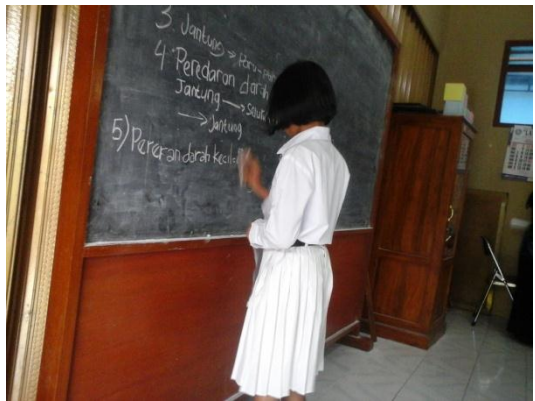 3. Jantung → Paru-
4. Peredaran darah
Jantung → Selur
→ Jantung
5) Pereran darah kecil